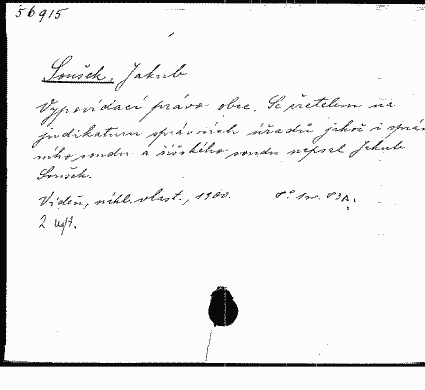 56915
Soušek, Jakub
Vypovídací právo obce. Se zřetelem na
judikaturu správních úřadů jakož i sprá
ního soudu a říšského soudu sepsal Jakub
Soušek.
Vídeň, nákl. vlast., 1900. 8° 1 sv. 83
2 výt.